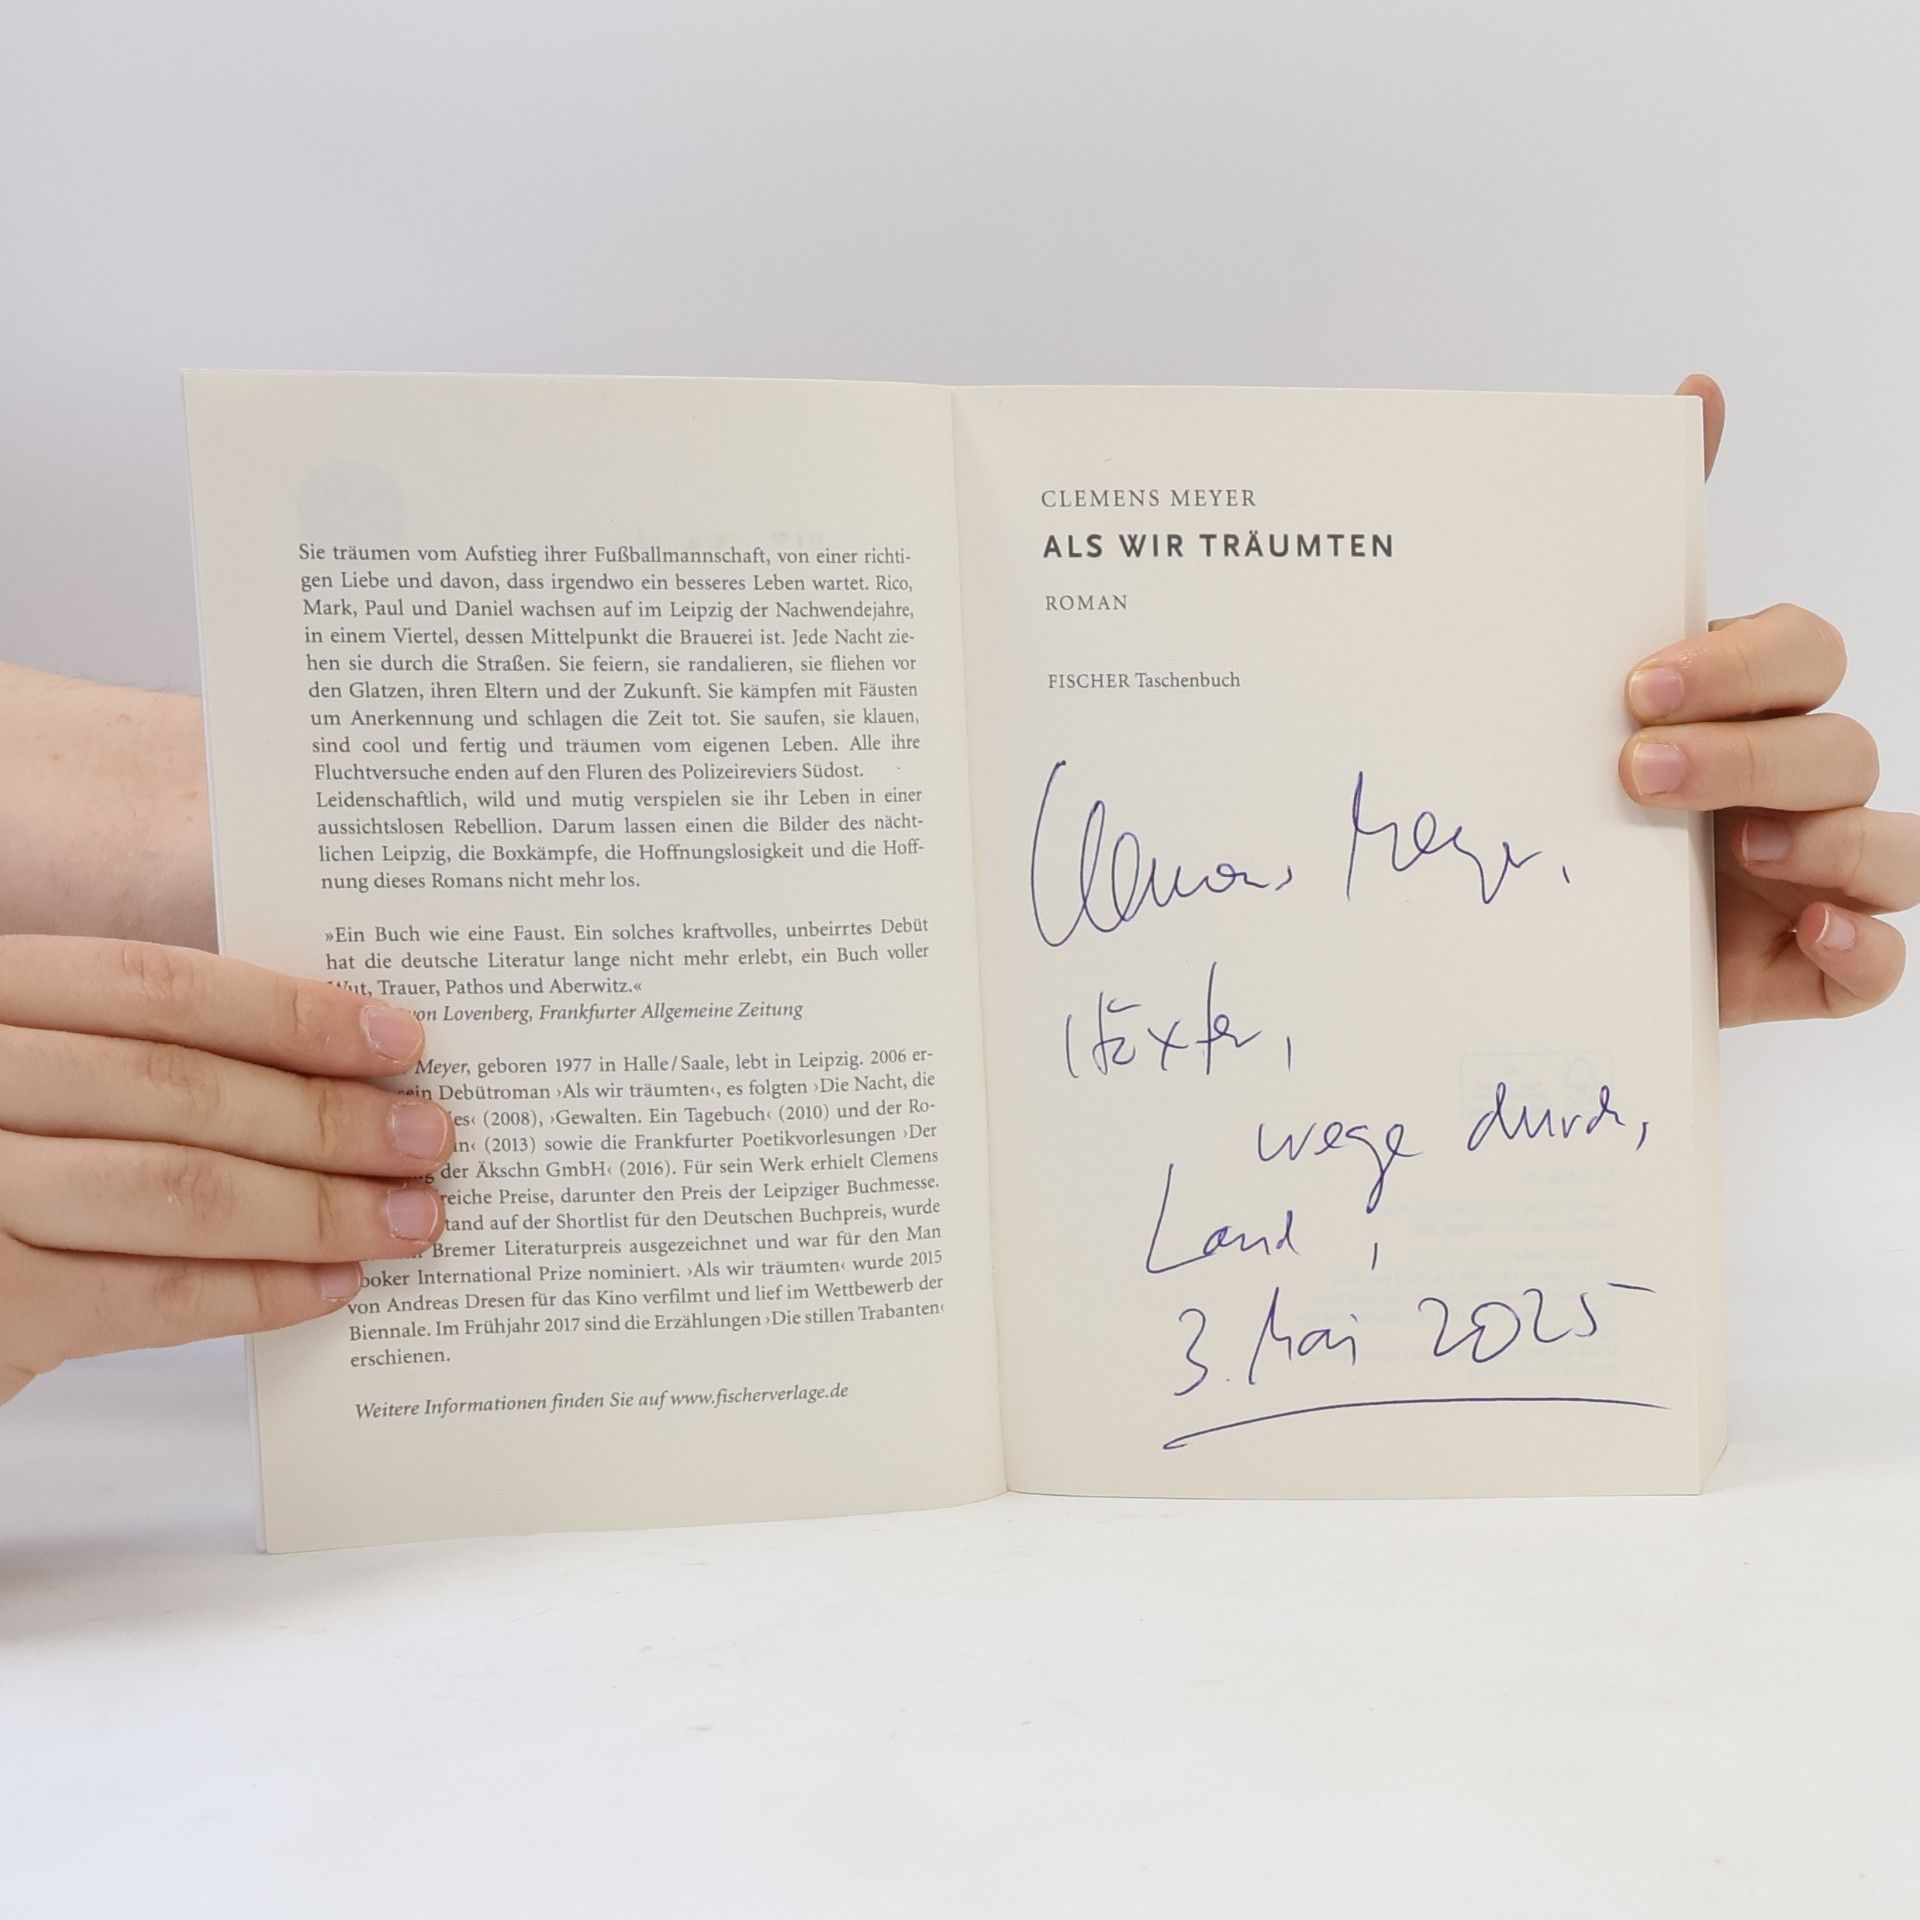 Sie träumen vom Aufstieg ihrer Fußballmannschaft, von einer richti-
gen Liebe und davon, dass irgendwo ein besseres Leben wartet. Rico,
Mark, Paul und Daniel wachsen auf im Leipzig der Nachwendejahre,
in einem Viertel, dessen Mittelpunkt die Brauerei ist. Jede Nacht zie-
hen sie durch die Straßen. Sie feiern, sie randalieren, sie fliehen vor
den Glatzen, ihren Eltern und der Zukunft. Sie kämpfen mit Fäusten
um Anerkennung und schlagen die Zeit tot. Sie saufen, sie klauen,
sind cool und fertig und träumen vom eigenen Leben. Alle ihre
Fluchtversuche enden auf den Fluren des Polizeireviers Südost.
Leidenschaftlich, wild und mutig verspielen sie ihr Leben in einer
aussichtslosen Rebellion. Darum lassen einen die Bilder des nächt-
lichen Leipzig, die Boxkämpfe, die Hoffnungslosigkeit und die Hoff-
nung dieses Romans nicht mehr los.
»Ein Buch wie eine Faust. Ein solches kraftvolles, unbeirrtes Debüt
hat die deutsche Literatur lange nicht mehr erlebt, ein Buch voller
Wut, Trauer, Pathos und Aberwitz.«
von Lovenberg, Frankfurter Allgemeine Zeitung
Meyer, geboren 1977 in Halle/Saale, lebt in Leipzig. 2006 er-
sein Debütroman ›Als wir träumten‹, es folgten ›Die Nacht, die
(2008), ›Gewalten. Ein Tagebuch‹ (2010) und der Ro-
(2013) sowie die Frankfurter Poetikvorlesungen ›Der
der Äkschn GmbH‹ (2016). Für sein Werk erhielt Clemens
reiche Preise, darunter den Preis der Leipziger Buchmesse.
tand auf der Shortlist für den Deutschen Buchpreis, wurde
Bremer Literaturpreis ausgezeichnet und war für den Man
ooker International Prize nominiert. ›Als wir träumten‹ wurde 2015
von Andreas Dresen für das Kino verfilmt und lief im Wettbewerb der
Biennale. Im Frühjahr 2017 sind die Erzählungen ›Die stillen Trabanten‹
erschienen.
Weitere Informationen finden Sie auf www.fischerverlage.de
CLEMENS MEYER
ALS WIR TRÄUMTEN
ROMAN
FISCHER Taschenbuch
Clemens Meyer,
Höxter,
wege durch,
Land,
3. Mai 2025